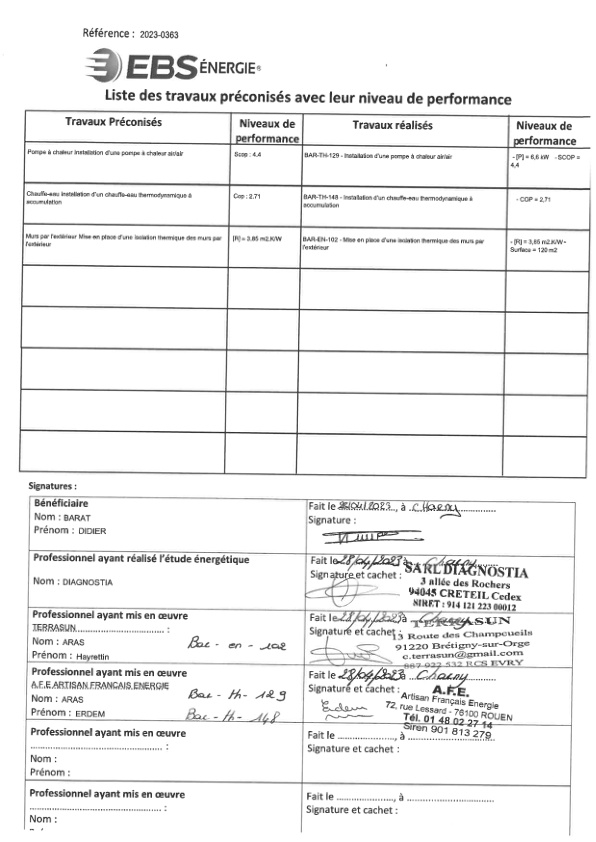 Référence : 2023-0363
EBS ÉNERGIE®
Liste des travaux préconisés avec leur niveau de performance
Travaux Préconisés
Niveaux de performance
Travaux réalisés
Niveaux de performance
Pompe à chaleur Installation d'une pompe à chaleur air/air
Scop : 4,4
BAR-TH-129 - Installation d'une pompe à chaleur air/air
- [P] = 6,6 kW - SCOP =
4,4
Chauffe-eau Installation d'un chauffe-eau thermodynamique à
accumulation
Cop : 2,71
BAR-TH-148 - Installation d'un chauffe-eau thermodynamique à
accumulation
- COP = 2,71
Murs par l'extérieur Mise en place d'une isolation thermique des murs par
l'extérieur
[R] = 3.85 m2.K/W
BAR-EN-102 - Mise en place d'une isolation thermique des murs par
l'extérieur
- [R] = 3,85 m2.K/W -
Surface = 120 m2
Signatures :
Bénéficiaire
Nom : BARAT
Prénom : DIDIER
Fait le 28/04/2023, à Charny
Signature :
Professionnel ayant réalisé l'étude énergétique
Nom : DIAGNOSTIA
Fait le 28/04/2023 à Charny
Signature et cachet :
SARL DIAGNOSTIA
3 allée des Rochers
94045 CRETEIL Cedex
NIRET : 914 121 223 00012
Professionnel ayant mis en œuvre
TERRASUN :
Nom : ARAS
Prénom : Hayrettin
Bar - en - 102
Fait le 28/04/2023 à Charny
Signature et cachet :
TERRASUN
13 Route des Champcueils
91220 Brétigny-sur-Orge
c.terrasun@gmail.com
887 922 532 RCS EVRY
Professionnel ayant mis en œuvre
A.F.E ARTISAN FRANCAIS ENERGIE
Nom : ARAS
Prénom : ERDEM
Bar - th - 129
Bar - th - 148
Fait le 28/04/2023 à Charny
Signature et cachet :
A.F.E.
Artisan Français Energie
72, rue Lessard - 76100 ROUEN
Tél. 01 48 02 27 14
Siren 901 813 279
Professionnel ayant mis en œuvre
:
Nom :
Prénom :
Fait le ..................., à ..........................
Signature et cachet :
Professionnel ayant mis en œuvre
:
Nom :
Fait le ..................., à ..........................
Signature et cachet :